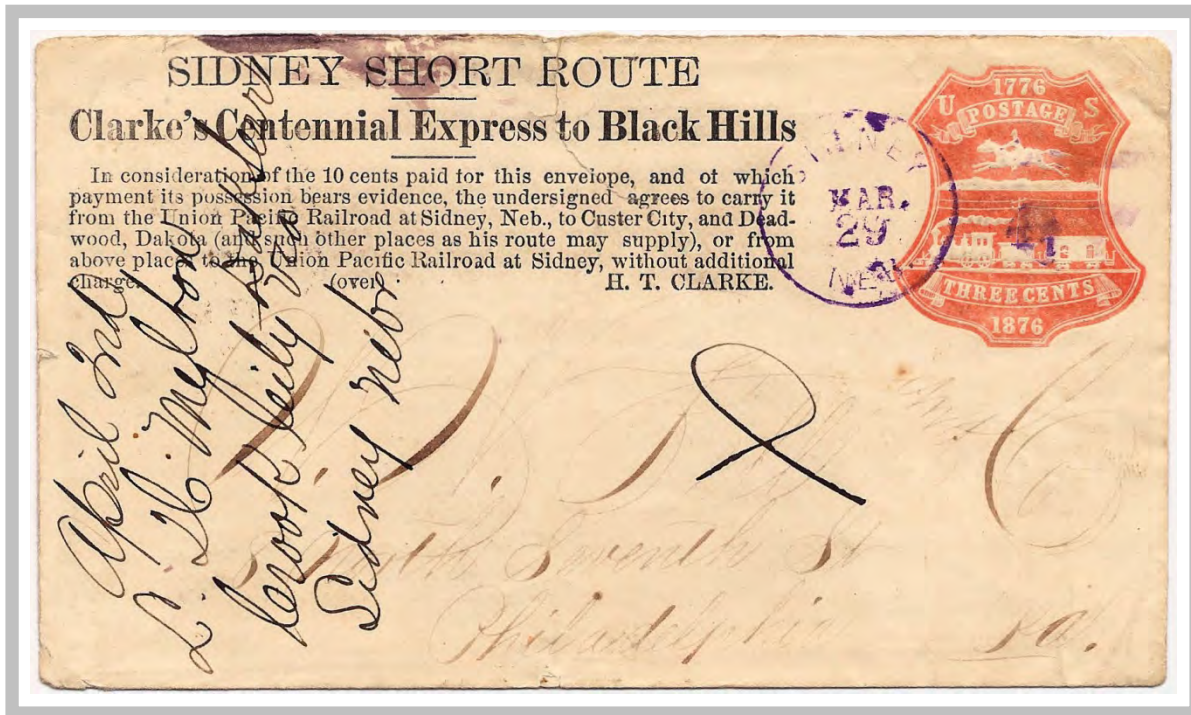 SIDNEY SHORT ROUTE
Clarke's Centennial Express to Black Hills
In consideration of the 10 cents paid for this envelope, and of which
payment its possession bears evidence, the undersigned agrees to carry it
from the Union Pacific Railroad at Sidney, Neb., to Custer City, and Dead-
wood, Dakota (and such other places as his route may supply), or from
above places to the Union Pacific Railroad at Sidney, without additional
charge. (over) H. T. CLARKE.
SIDNEY
MAR.
29
NEB.
1776
U POSTAGE S
THREE CENTS
1876
April 3rd
L. H.
Crook City
Sidney Nebr
Seventh St
Philadelphia Pa.